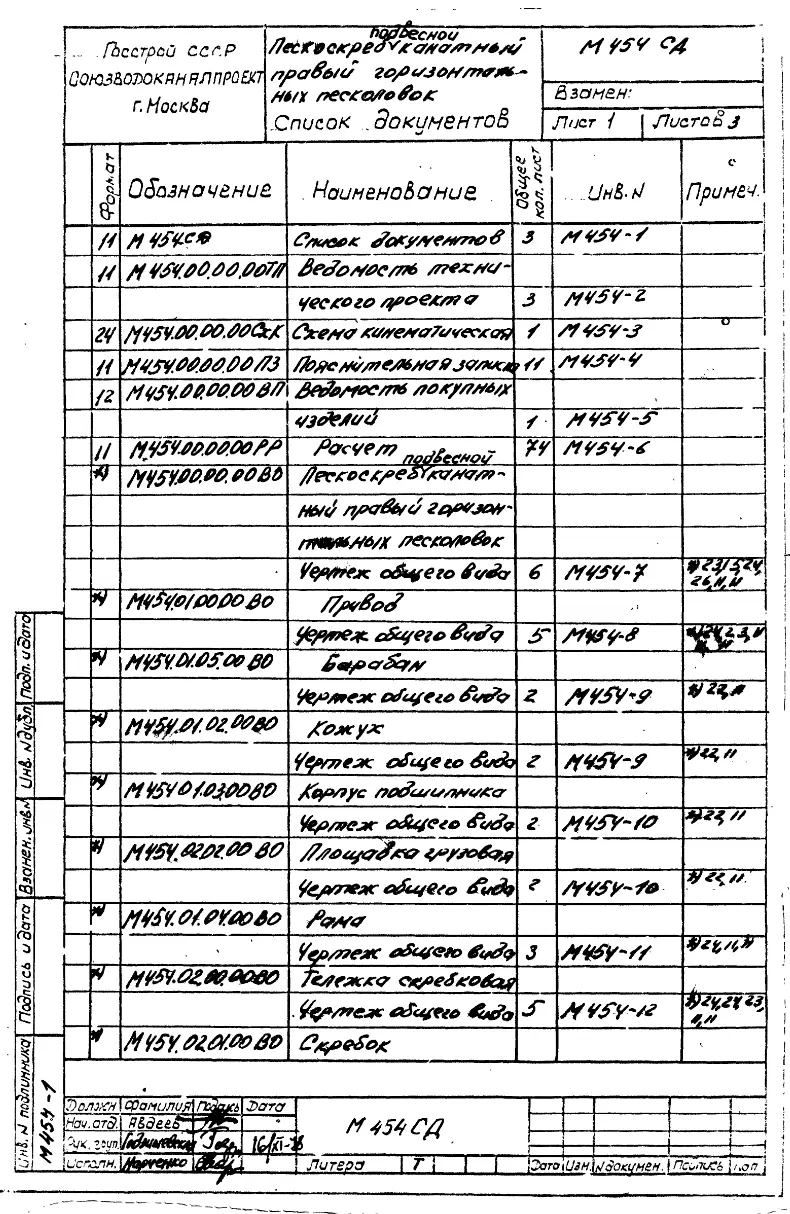 Госстрой СССР
СОЮЗВОДОКАНАЛПРОЕКТ
г. Москва
подвесной
Пескоскреб канатный
правый горизонталь-
ных песколовок
Список документов
М 454 СД
Взамен:
Лист 1 Листов 3
Формат Обозначение Наименование Общее кол. лист Инв. N Примеч.
11 М 454.СД Список документов 3 М 454-1
11 М 454.00.00.00ТП Ведомость техни-
ческого проекта 3 М454-2
24 М454.00.00.00СхК Схема кинематическая 1 М 454-3
11 М454.00.00.00ПЗ Пояснительная записка 11 М454-4
12 М454.00.00.00ВП Ведомость покупных
изделий 1 М454-5
11 М.454.00.00.00РР Расчет 74 М454-6
подвесной
*) М454.00.00.00ВО Пескоскреб канат-
ный правый горизон-
тальных песколовок
Чертеж общего вида 6 М454-7
*) М454.01.00.00ВО Привод
Чертеж общего вида 5 М454-8
*) М454.01.05.00 ВО Барабан
Чертеж общего вида 2 М454-9 *) 22,11
*) М454.01.02.00ВО Кожух
Чертеж общего вида 2 М454-9 *) 22, 11
*) М454.01.03.00ВО Корпус подшипника
Чертеж общего вида 2 М454-10 *) 22, 11
*) М454.02.02.00 ВО Площадка грузовая
Чертеж общего вида 2 М454-10 *) 22, 11
*) М454.01.04.00ВО Рама
Чертеж общего вида 3 М454-11 *) 24,11,11
*) М454.02.00.00ВО Тележка скребковая
Чертеж общего вида 5 М454-12
*) М454.02.01.00 ВО Скребок
Инв. N подлинника Подпись и дата Взамен. инв.N Инв. N дубл. Подп. и дата
М 454-1
Должн Фамилия Подпись Дата
Нач. отд. Авдеев
Рук. груп. 16/XI-
Исполн. Марченко
М 454 СД
Литера Т
Дата Изм. N докумен. Подпись